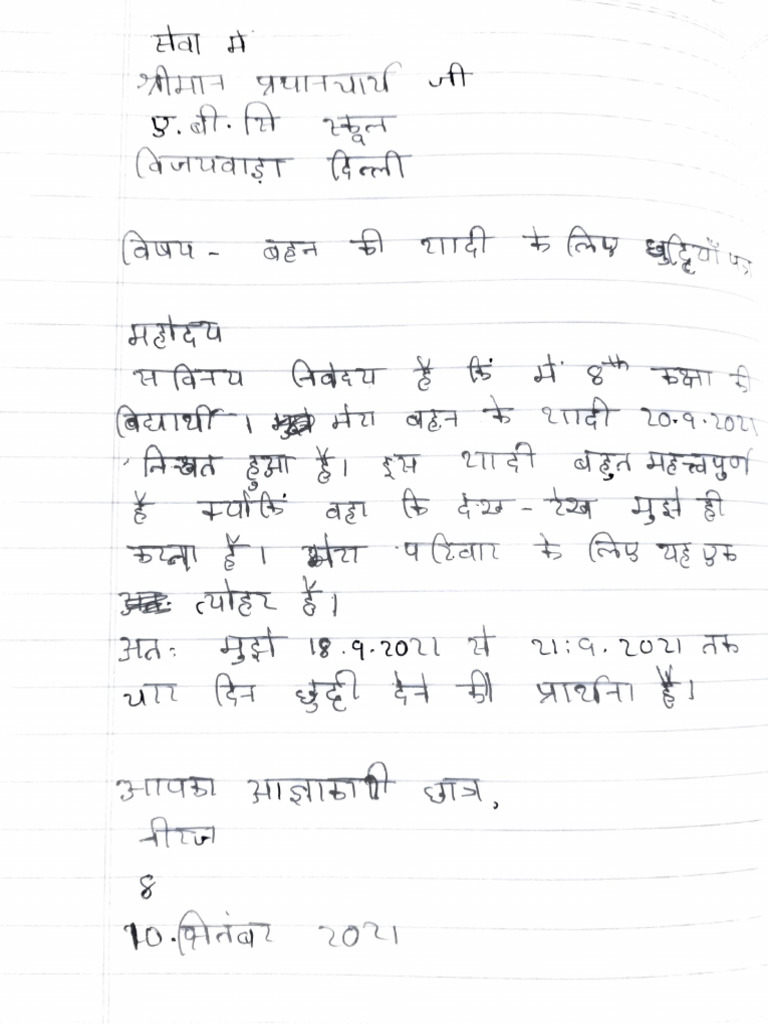 सेवा में
श्रीमान प्रधानचार्य जी
ए.बी.सि स्कूल
विजयवाड़ा दिल्ली
विषय - बहन की शादी के लिए छुट्टियाँ पत्र
महोदय
सविनय निवेदय है कि में 8th कक्षा की
विद्यार्थी । मेरा बहन के शादी 20.9.2021
निश्चत हुआ है। इस शादी बहुत महत्त्वपुर्ण
है क्योंकिं वहा कि देख - रेख मुझे ही
करना है। मेरा परिवार के लिए यह एक
त्योहर है।
अतः मुझे 18.9.2021 से 21:9.2021 तक
चार दिन छुट्टी देने की प्रार्थना है।
आपका आज्ञाकारी छात्र,
नीरज
8
10.सितंबर 2021